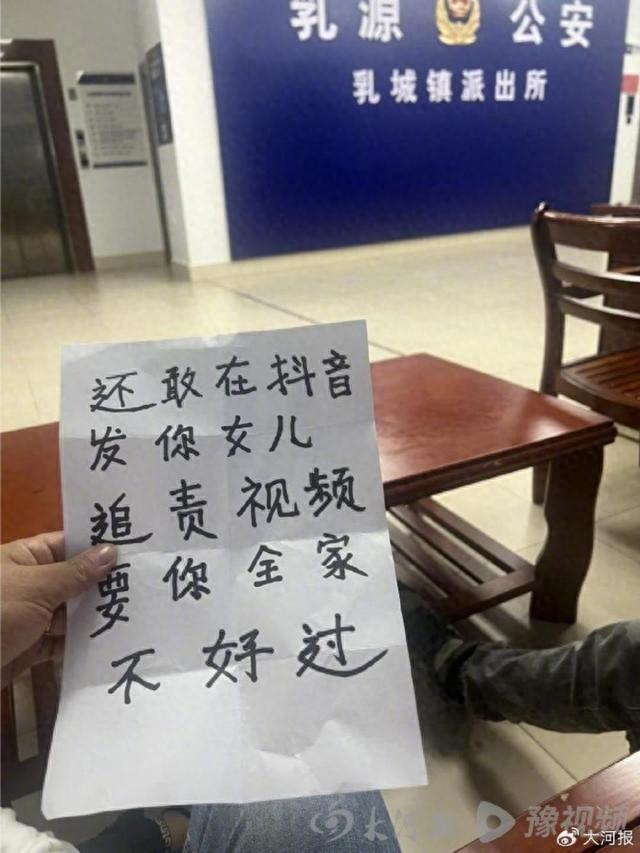 乳源 公安
乳城镇派出所
还敢在抖音
发你女儿
追责视频
要你全家
不好过
大河 豫视频
大河报